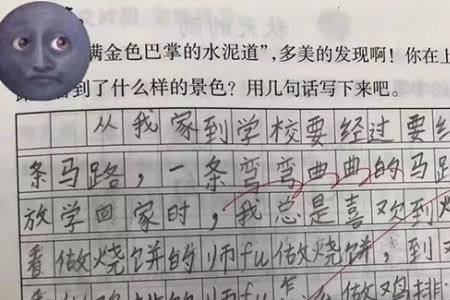 满金色巴掌的水泥道”,多美的发现啊!你在上
到了什么样的景色?用几句话写下来吧。
从我家到学校要经过要
条马路,一条弯弯曲曲的马路
放学回家时,我总是喜欢到
看做烧饼的师fu做烧饼,到
做鸡排